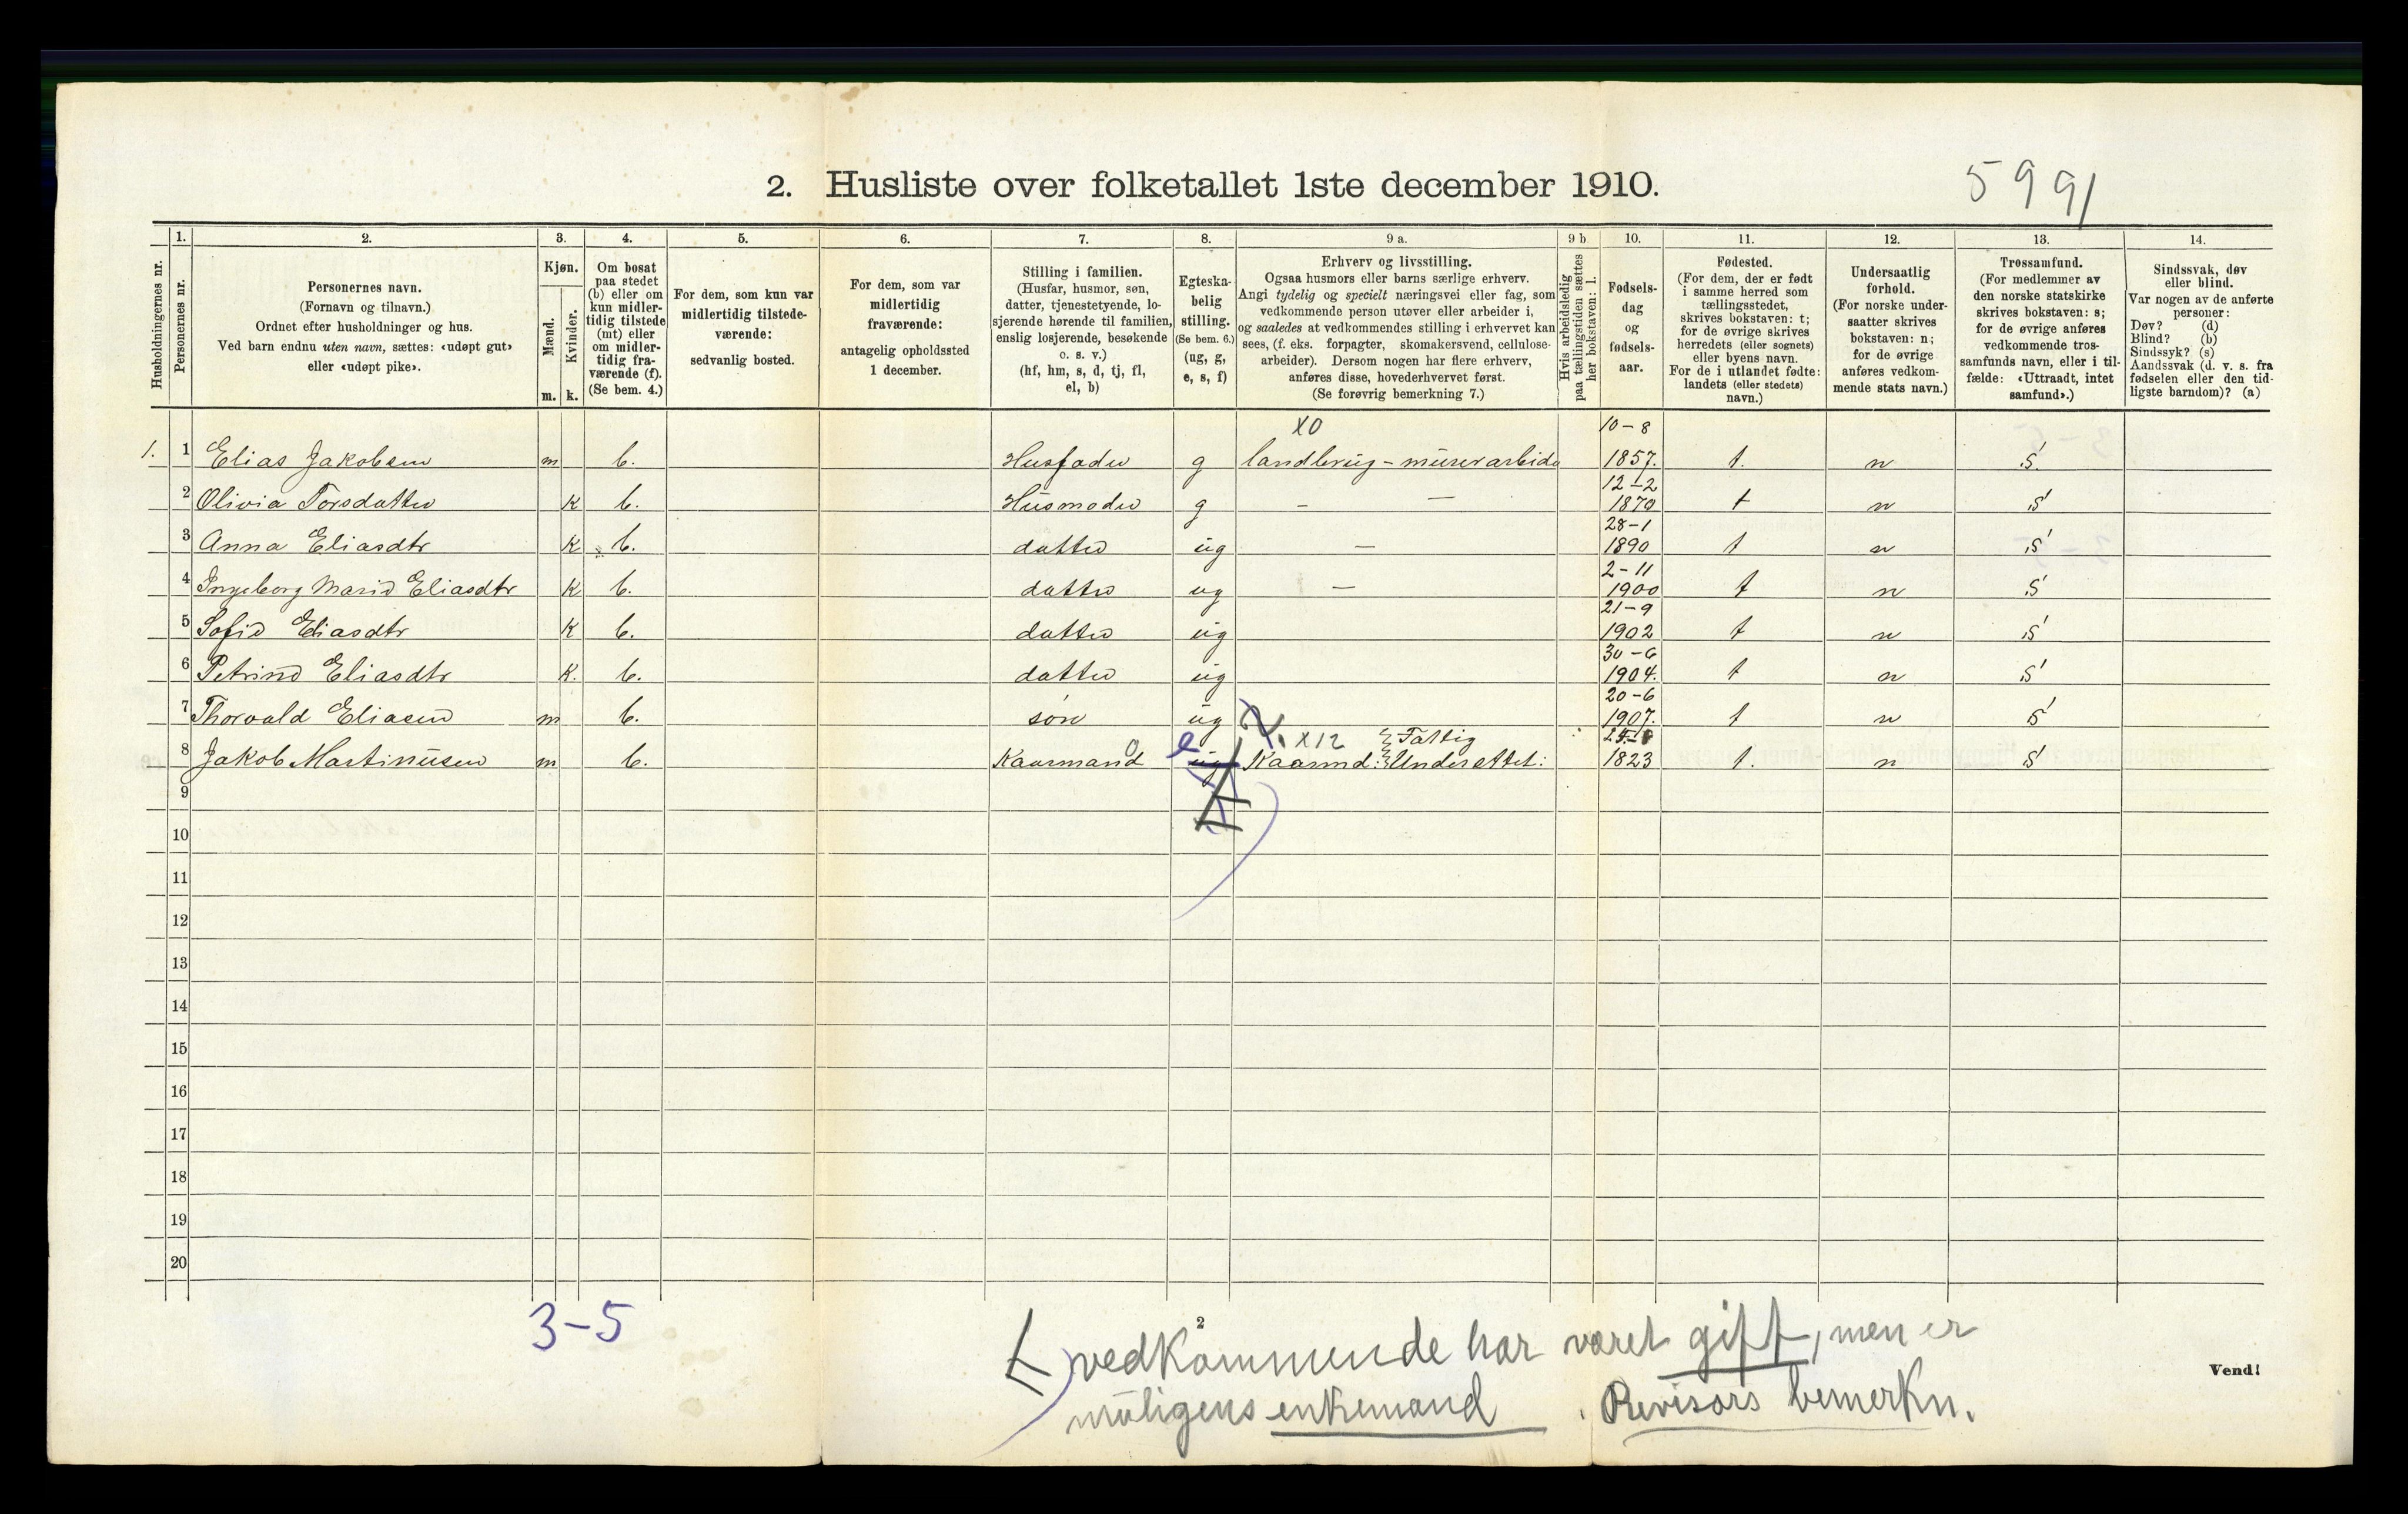 5991
2. Husliste over folketallet 1ste december 1910.
Husholdningernes nr.
1. Personernes nr.
2. Personernes navn.
(Fornavn og tilnavn.)
Ordnet efter husholdninger og hus.
Ved barn endnu uten navn, sættes: «udøpt gut»
eller «udøpt pike».
3. Kjøn.
Mænd. m.
Kvinder. k.
4. Om bosat
paa stedet
(b) eller om
kun midler-
tidig tilstede
(mt) eller
om midler-
tidig fra-
værende (f).
(Se bem. 4.)
5. For dem, som kun var
midlertidig tilstede-
værende:
sedvanlig bosted.
6. For dem, som var
midlertidig
fraværende:
antagelig opholdssted
1 december.
7. Stilling i familien.
(Husfar, husmor, søn,
datter, tjenestetyende, lo-
sjerende hørende til familien,
enslig losjerende, besøkende
o. s. v.)
(hf, hm, s, d, tj, fl,
el, b)
8. Egteska-
belig
stilling.
(Se bem. 6.)
(ug, g,
e, s, f)
9 a. Erhverv og livsstilling.
Ogsaa husmors eller barns særlige erhverv.
Angi tydelig og specielt næringsvei eller fag, som
vedkommende person utøver eller arbeider i,
og saaledes at vedkommendes stilling i erhvervet kan
sees, (f. eks. forpagter, skomakersvend, cellulose-
arbeider). Dersom nogen har flere erhverv,
anføres disse, hovederhvervet først.
(Se forøvrig bemerkning 7.)
9 b Hvis arbeidsledig
paa tællingstiden sættes
her bokstaven: l.
10. Fødsels-
dag
og
fødsels-
aar.
11. Fødested.
(For dem, der er født
i samme herred som
tællingsstedet,
skrives bokstaven: t;
for de øvrige skrives
herredets (eller sognets)
eller byens navn.
For de i utlandet fødte:
landets (eller stedets)
navn.)
12. Undersaatlig
forhold.
(For norske under-
saatter skrives
bokstaven: n;
for de øvrige
anføres vedkom-
mende stats navn.)
13. Trossamfund.
(For medlemmer av
den norske statskirke
skrives bokstaven: s;
for de øvrige anføres
vedkommende tros-
samfunds navn, eller i til-
fælde: «Uttraadt, intet
samfund».)
14. Sindssvak, døv
eller blind.
Var nogen av de anførte
personer:
Døv? (d)
Blind? (b)
Sindssyk? (s)
Aandssvak (d. v. s. fra
fødselen eller den tid-
ligste barndom)? (a)
X0 10-8
1. 1 Elias Jakobsen m b. Husfader g landbrug - murerarbeide 1857. t. n s.
12-2
2 Olivia Torsdatter k b. Husmoder g - — 1870 t n s
28-1
3 Anna Eliasdtr k b. datter ug — 1890 t n s
2-11
4 Ingeborg Marie Eliasdtr k b. datter ug — 1900 t n s
21-9
5 Sofie Eliasdtr k b. datter ug 1902 t n s
30-6
6 Petrine Eliasdtr k. b. datter ug 1904. t n s
20-6
7 Thorvald Eliasen m b. søn ug 1907. t n s
0 e X12 Fattig
8 Jakob Martinusen m b. Kaarmand ug Kaarmd: Understøttet: 1823 t. n s
9
10
11
12
13
14
15
16
17
18
19
20
3-5
2
vedkommende har været gift, men er
muligens enkemand. Revisors bemerkn.
Vend!